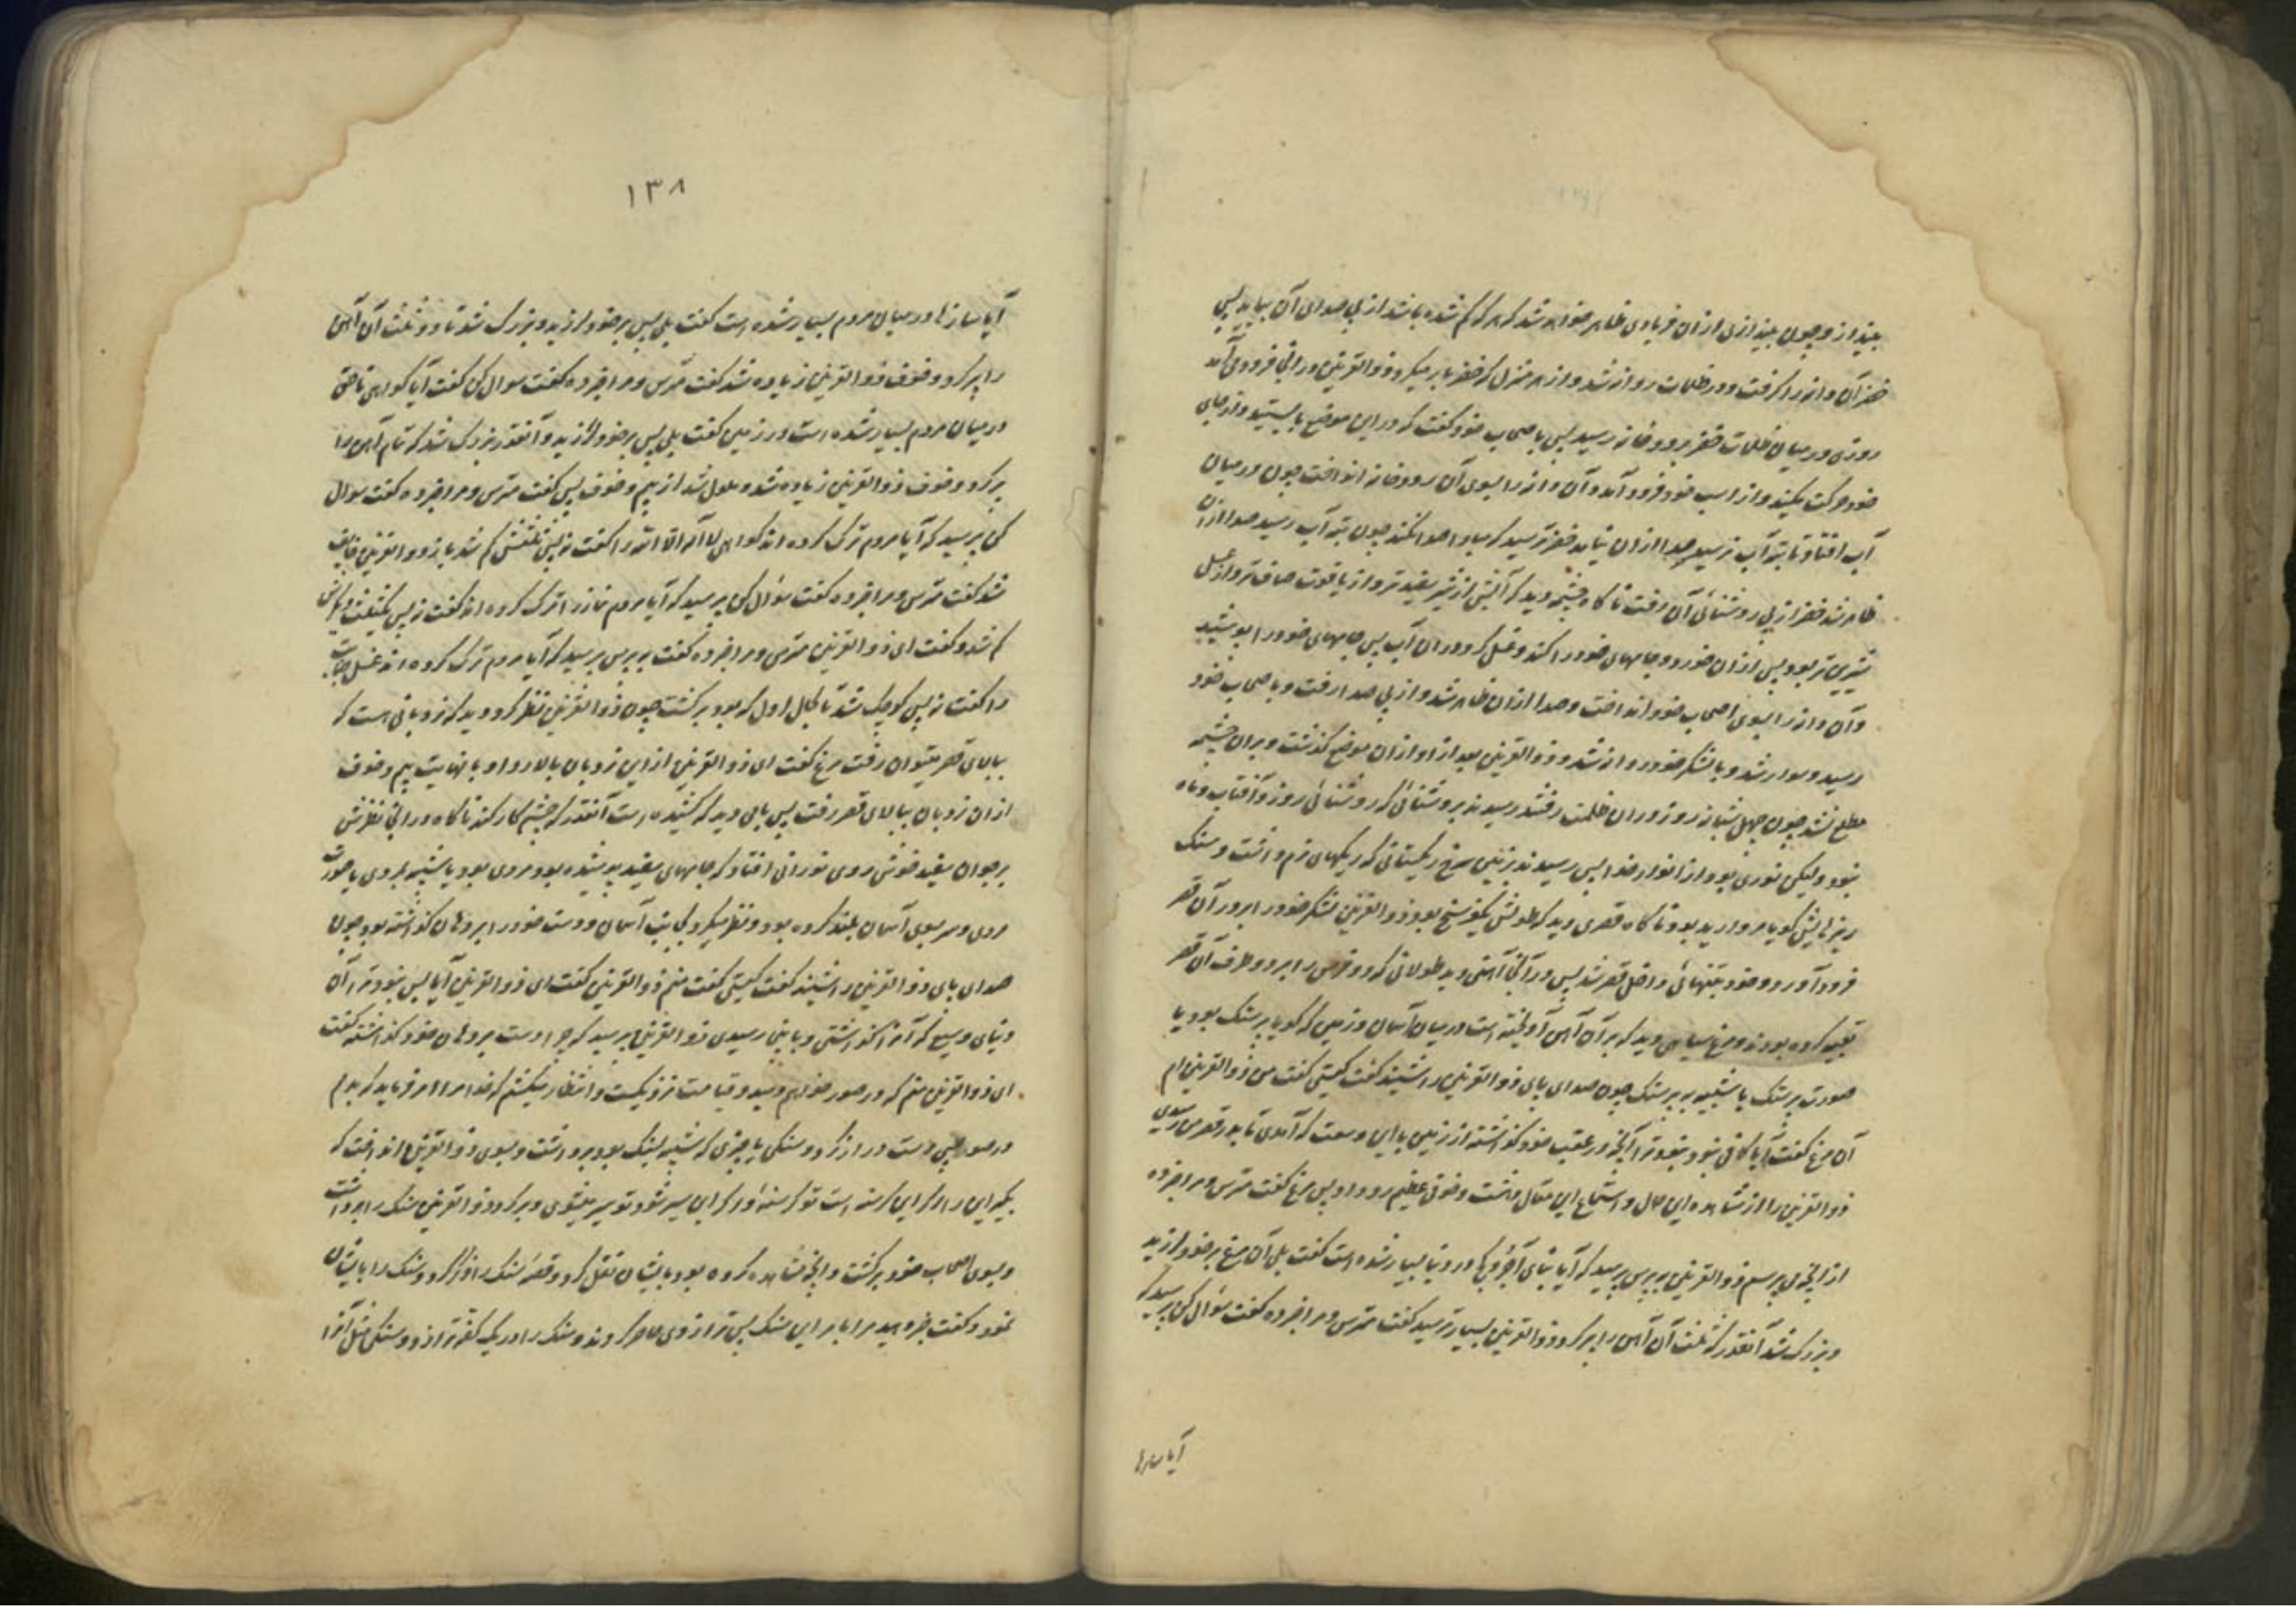 بینداز و چون بیندازی ازان فریادی ظاهر خواهد شد که هر که کم شده باشد از پی صدای آن بیاید پس
خضر آن دانه را کرفت و در ظلمات روانه شد و از هر منزل که خضر بار میکرد ذوالقرنین در انجا فرود می آمد
روزی در میان ظلمات خضر برودخانه رسید پس باصحاب خود کفت که در این موضع بایستید و از جای
خود حرکت مکنید و از اسب خود فرود آمد و آن دانه را بسوی آن رودخانه انداخت چون در میان
آب افتاد تا بته آب نرسید صدا ازان نیامد خضر ترسید که مبادا صدا نکند چون بته آب رسید صدا ازان
ظاهر شد خضر از پی روشنائی آن رفت ناکاه چشمه دید که آبش از شیر سفیدتر و از یاقوت صاف تر و از عسل
شیرین تر بود پس ازان خورد و جامهای خود را کند و غسل کرد در ان آب پس جامهای خود را پوشید
و آن دانه را بسوی اصحاب خود انداخت و صدا ازان ظاهر شد و از پی صدا رفت و باصحاب خود
رسید و سوار شد و با لشکر خود روانه شد و ذوالقرنین بعد از او ازان موضع کذشت و بران چشمه
مطلع نشد چون چهل شبانه روز در ان ظلمت رفتند رسیدند بروشنائی که روشنائی روز و آفتاب و ماه
نبود ولیکن نوری بود از انوار خدا پس رسیدند بزمین سرخ ریکستانی که ریکهای نرم داشت و سنک
ریزهایش کویا مروارید بود ناکاه قصری دید که طولش یکفرسخ بود ذوالقرنین لشکر خود را بر در آن قصر
فرود آورد و خود بتنهائی داخل قصر شد پس در آنجا آهنی دید طولانی که دو طرفش را بر دو طرف آن قصر
تعبیه کرده بودند و مرغ سیاهی دید که بر آن آهن آویخته است در میان آسمان و زمین که کویا پرستک بود یا
صورت پرستک یا شبیه به پرستک چون صدای پای ذوالقرنین را شنید کفت کیستی کفت من ذوالقرنین ام
آن مرغ کفت آیا کافی نبود ترا آنچه در عقب خود کذاشته از زمین باین وسعت که آمدی تا بدر قصر من رسیدی
ذوالقرنین را از مشاهده این حال و استماع این مقال دهشت و خوفی عظیم رو داد پس مرغ کفت مترس و مرا خبر ده
از انچه می پرسم ذوالقرنین به پرس پرسید که آیا بنای آجر و کچ در دنیا بسیار شده است کفت بلی آن مرغ بر خود لرزید
و بزرک شد آنقدر که ثلث آن آهن را پر کرد ذوالقرنین بسیار ترسید کفت مترس و مرا خبر ده کفت سؤال کن پرسید که
آیا سازها
١٣٨
آیا سازها در میان مردم بسیار شده است کفت بلی پس بر خود لرزید و بزرک شد تا دو ثلث آن آهن
را پر کرد و خوف ذوالقرنین زیاده شد کفت مترس و مرا خبر ده کفت سوال کن کفت آیا کواهی ناحق
در میان مردم بسیار شده است در زمین کفت بلی پس بر خود لرزید و آنقدر بزرک شد که تمام آهن را
پر کرد و خوف ذوالقرنین زیاده شد و مملو شد از بیم و خوف پس کفت مترس و مرا خبر ده کفت سوال
کن پرسید که آیا مردم ترک کرده اند کواهی لا اله الا الله را کفت نه پس ثلثش کم شد باز ذوالقرنین خایف
شد کفت مترس و مرا خبر ده کفت سؤال کن پرسید که آیا مردم نماز را ترک کرده اند کفت نه پس یکثلث دیکرش
کم شد و کفت ای ذوالقرنین مترس و مرا خبر ده کفت به پرس پرسید که آیا مردم ترک کرده اند غسل جنابت
را کفت نه پس کوچک شد تا بحال اول که بود برکشت چون ذوالقرنین نظر کرد دید که نردبانی است که
ببالای قصر میتوان رفت مرغ کفت ای ذوالقرنین از این نردبان بالا رو او با نهایت بیم و خوف
ازان نردبان ببالای قصر رفت پس بامی دید که کشیده است آنقدر که چشم کار کند ناکاه در انجا نظرش
بر جوان سفید خوش روی نورانی افتاد که جامهای سفید پوشیده بود مردی بود یا شبیه بمردی یا صورت
مردی و سر بسوی آسمان بلند کرده بود و نظر میکرد بجانب آسمان و دست خود را بر دهان کذاشته بود چون
صدای پای ذوالقرنین را شنید کفت کیستی کفت منم ذوالقرنین کفت ای ذوالقرنین آیا بس نبود ترا آن
دنیای وسیع که آنرا کذاشتی و باینجا رسیدی ذوالقرنین پرسید که چرا دست بر دهان خود کذاشته کفت
ای ذوالقرنین منم که در صور خواهم دمید و قیامت نزدیکست و انتظار میکشم که خدا مرا امر فرماید که بدمم
در صور پس دست دراز کرد و سنکی یا چیزی که شبیه بسنک بود برداشت و بسوی ذوالقرنین انداخت که
بکیر این را اکر این کرسنه است تو کرسنهٔ و اکر این سیر شود تو سیر میشوی و برکرد ذوالقرنین سنک را برداشت
و بسوی اصحاب خود برکشت و انچه مشاهده کرده بود بایشان نقل کرد و قصهٔ سنک را ذکر کرد و سنک را بایشان
نمود و کفت خبر دهید مرا بامر این سنک پس ترازوی حاضر کردند و سنک را در یک کفه ترازو و سنکی مثل آنرا